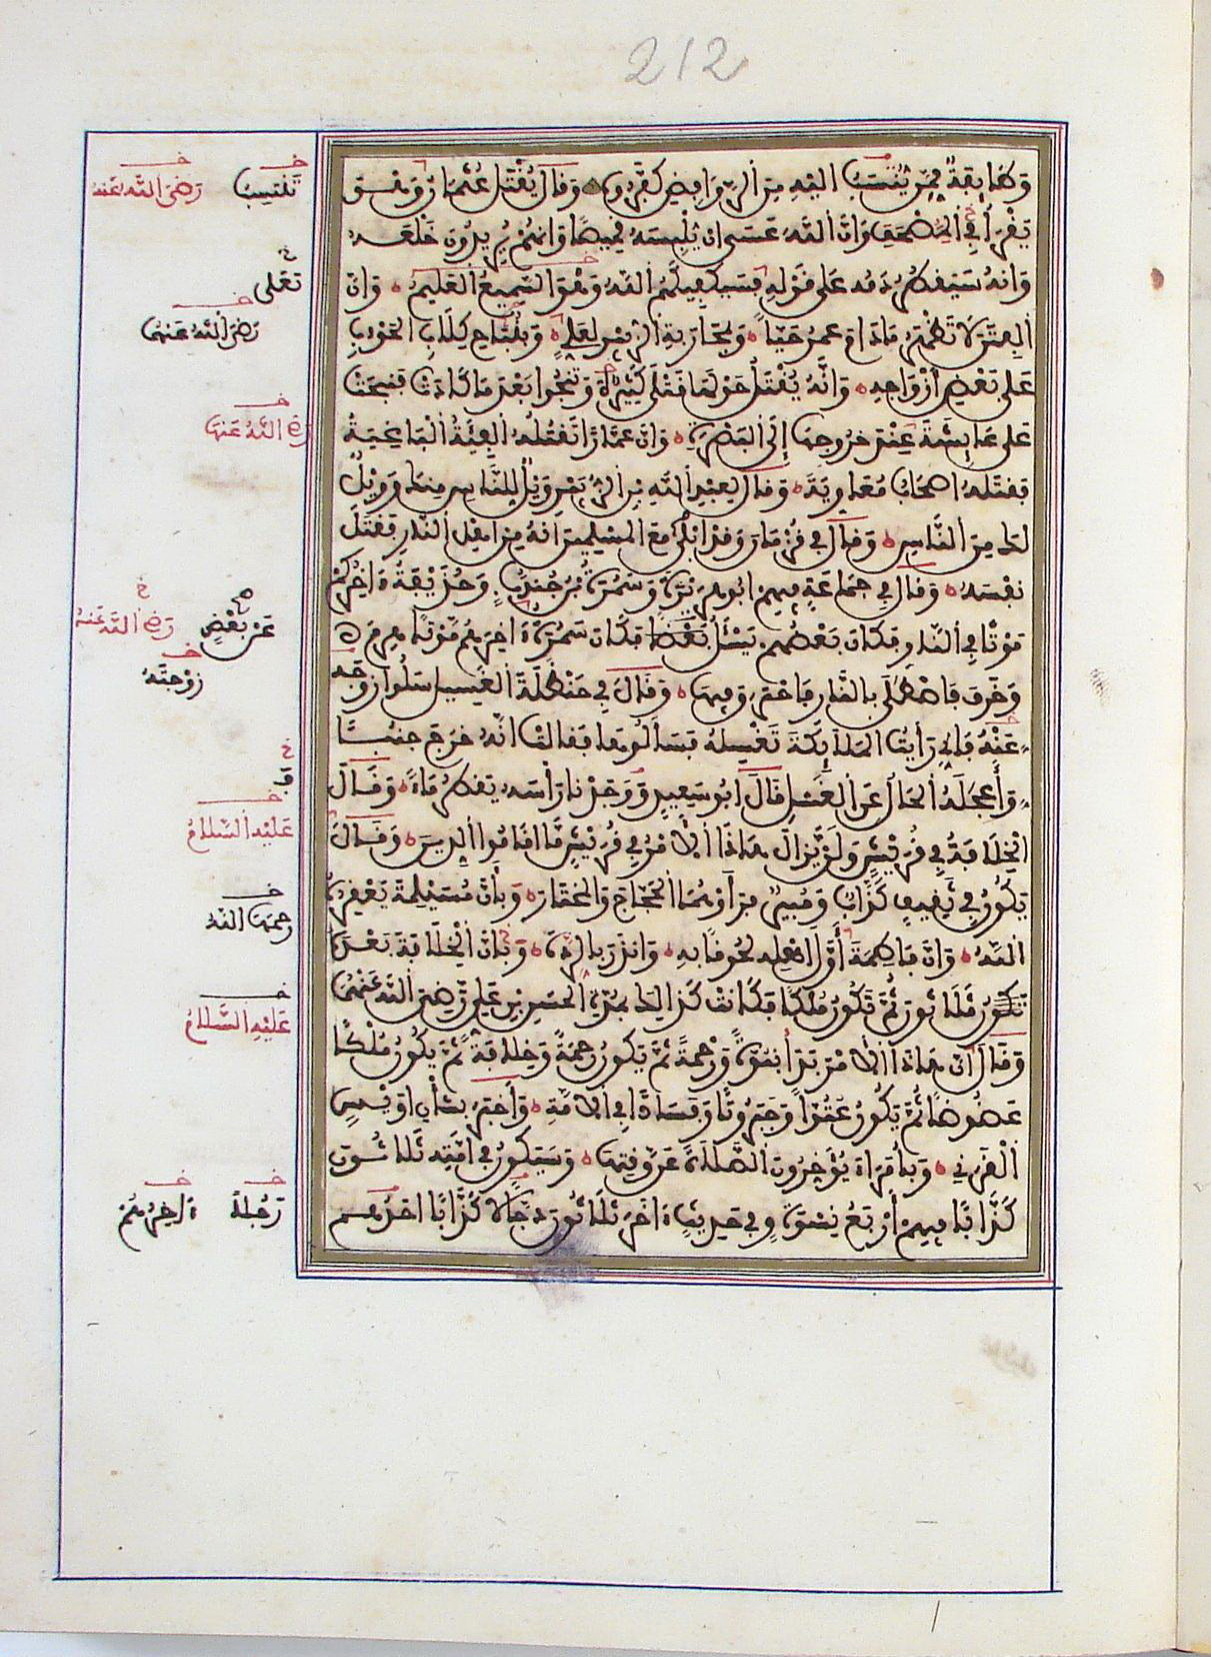 212
وَطَايِفَةٌ مِّمَّنْ يُنْتَسَبُ اليْهِ مِنَ الرَّوَافِضِ كَفَّرُوهُ وَقَالَ يُقْتَلُ عُثْمَانُ وَهُوَ
يَقْرَأُ فِي الْمُصْحَفِ وَانَّ اللَّهَ عَسَى انْ يُلْبِسَهُ قَمِيصًا وَانَّهُمْ يُرِيدُونَ خَلْعَهُ
وَانَّهُ سَيَقْطُرُ دَمُه عَلَى قَوْلِهِ فَسَيَكْفِيكَهُمُ اللَّهُ وَهُوَ السَّمِيعُ الْعَلِيمُ وَانَّ
الْفِتَنَ لَا تَظْهَرُ مَادَامَ عمرُ حَيّاً وَبِمُحَارَبَةِ الزُّبَيْرِ لِعَلِيٍّ وَبِنُبَاحِ كِلَابِ الحَوْءَبِ
عَلَى بَعْضِ أَزْوَاجِهِ وَانَّهُ يُقْتَلُ حَوْلَهَا قَتْلَى كَثِيرَةٌ وَتَنْجُوا بَعْدَ مَا كَادَتْ فَنَبَحَتْ
عَلَى عَايِشَةَ عِنْدَ خرُوجِهَا إِلَى الْبَصْرَةِ وَانَّ عَمَّارًا تَقْتُلُهُ الْفِئَةُ الْبَاغِيَةُ
فَقَتَلَهُ اصْحَابُ مُعَاوِيَةَ وَقَالَ لِعَبْدِ اللَّهِ بْنِ الزُّبَيْرِ وَيْلٌ لِلنَّاسِ مِنْكَ وَوَيْلٌ
لَكَ مِنَ النَّاسِ وَقَالَ فِي قُزْمَانَ وَقَدْ ابْلَى مَعَ الْمُسْلِمِينَ انَّهُ مِنْ اهْلِ النَّارِ فَقَتَلَ
نَفْسَهُ وَقَالَ فِي جَمَاعَةٍ فِيهِمْ ابُو هُرَيْرَةَ وَسَمُرَةُ بْنُ جُنْدُبٍ وَحُذَيْفَةُ ءَاخِرُكُمْ
مَوْتًا فِي النَّارِ فَكَانَ بَعْضُهُمْ يَسْئَلُ بَعْضًا فَكَانَ سَمُرَةُ ءَاخِرَهُمْ مَوْتًا هَرِمَ
وَخَرِفَ فَاصْطَلَى بِالنَّارِ فَاحْتَرَقَ فِيهَا وَقَالَ فِي حَنْظَلَةَ الغَسِيلِ سَلُوا زَوْجَه
عَنْهُ فَإِنِّي رَأَيْتُ الْمَلَائِكَةَ تَغْسِلُهُ فَسَأَلُوهَا فَقَالَتْ انَّهُ خَرَجَ جنُبًا
وَأَعْجَلَهُ الْحَالُ عَنِ الْغُسْلِ قَالَ ابُو سَعِيدٍ وَوَجَدْنَا رَأْسَهُ يَقْطُرُ مَاءً وَقَالَ
الْخِلَافَةُ فِي قُرَيْشٍ وَلَنْ يَزَالَ هَاذَا الْأَمْرُ فِي قُرَيْشٍ مَّا اقَامُوا الدِّينَ وَقَالَ
يَكُونُ فِي ثَقِيفٍ كَذَّابٌ وَمُبِيرٌ فَرَأَوْهُمَا الْحَجَّاجَ وَالْمُخْتَارَ وَبِأَنَّ مُسَيْلِمَةَ يَعْقِرُهُ
اللَّهُ وَانَّ فَاطِمَةَ أَوَّلُ اهْلِهِ لُحُوقًا بِهِ وَانْذَرَ بِالرِّدَّةِ وَبِأَنَّ الْخِلَافَةَ بَعْدَهُ
تَكُونُ ثَلَاثُونَ ثُمَّ تَكُونُ مُلْكًا فَكَانَتْ كَذَالِكَ بِمُدَّةِ الْحَسَنِ بْنِ عَلِيٍّ رَضِيَ اللَّهُ عَنْهُمَا
وَقَالَ انَّ هَاذَا الْأَمْرَ بَدَأَ نُبُوَّةً وَرَحْمَةً ثُمَّ يَكُونُ رَحْمَةً وَخِلَافَةً ثُمَّ يَكُونُ مُلْكًا
عَضُوضًا ثُمَّ يَكُونُ عُتُوّاً وَجَبَرُوتًا وَفَسَادًا فِي الْأُمَّةِ وَأَخْبَرَ بِشَأْنِ اوَيْسٍ
الْقَرَنِي وَبِأُمَرَاءَ يُؤَخِّرُونَ الصَّلَاةَ عَنْ وَقْتِهَا وَسَيَكُونُ فِي امَّتِهِ ثَلَاثُونَ
كَذَّابًا فِيهِمْ أَرْبَعُ نِسْوَةٍ وفِي حَدِيثٍ ءَاخَرَ ثَلَاثُونَ دَجَّالًا كَذَّابًا احَدُهُمُ
تَنْتَسِبُ
رَضِيَ اللَّهُ عَنْهُ
تَعَلَى
رَضِيَ اللَّهُ عَنْهُمَا
رَضِيَ اللَّهُ عَنْهَا
عَنْ بَعْضٍ
رَضِيَ اللَّهُ عَنْهُ
زَوْجَتَهُ
عَلَيْهِ السَّلَامُ
رحمَهَا اللهُ
عَلَيْهِ السَّلَامُ
رَجُلاً
ءَاخِرُهُمْ